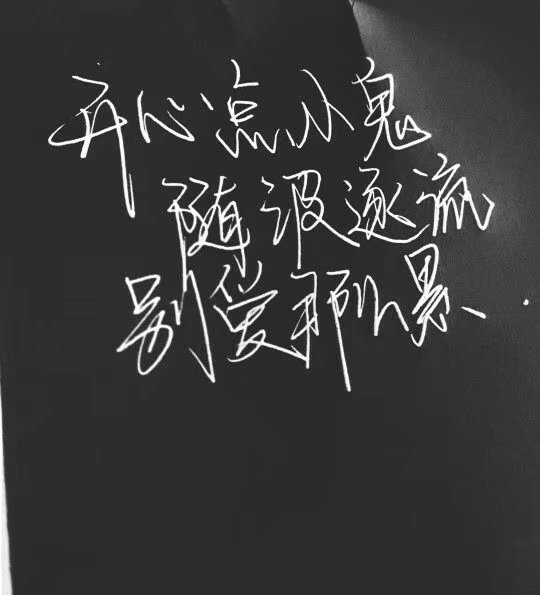 开心点小鬼
随波逐流
别爱那么累、